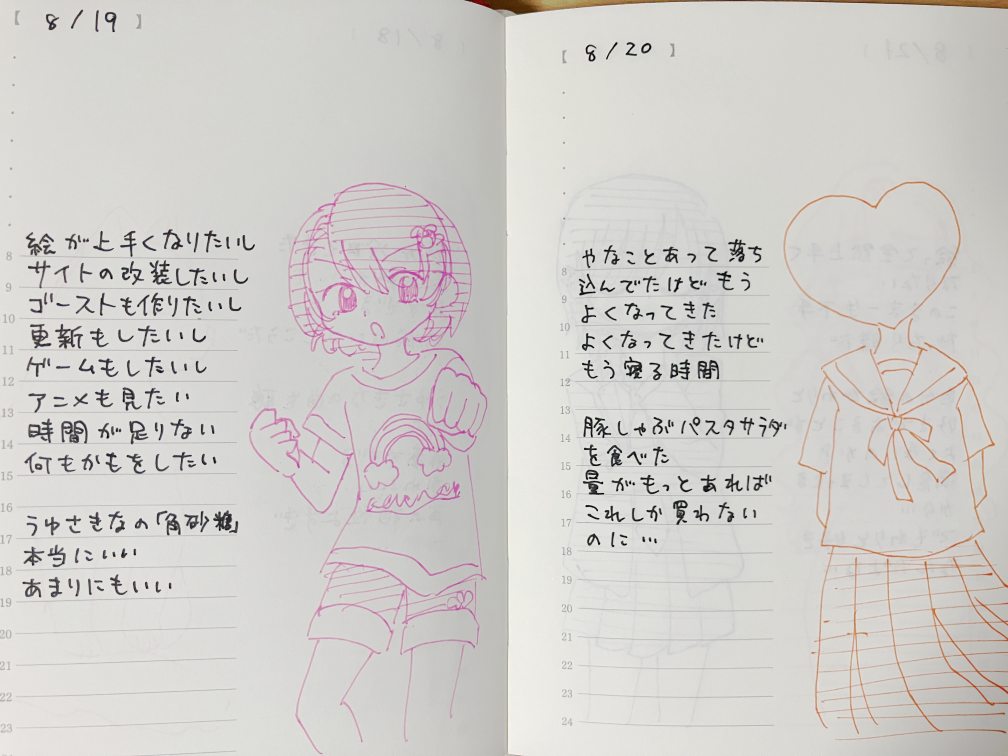 【 8/19 】
絵が上手くなりたいし
サイトの改装したいし
ゴーストも作りたいし
更新もしたいし
ゲームもしたいし
アニメも見たい
時間が足りない
何もかもをしたい
うゆさきなの「角砂糖」
本当にいい
あまりにもいい
8
9
10
11
12
13
14
15
16
17
18
19
20
21
22
23
【 8/20 】
やなことあって落ち
込んでたけどもう
よくなってきた
よくなってきたけど
もう寝る時間
豚しゃぶパスタサラダ
を食べた
量がもっとあれば
これしか買わない
のに…
8
9
10
11
12
13
14
15
16
17
18
19
20
21
22
23
24